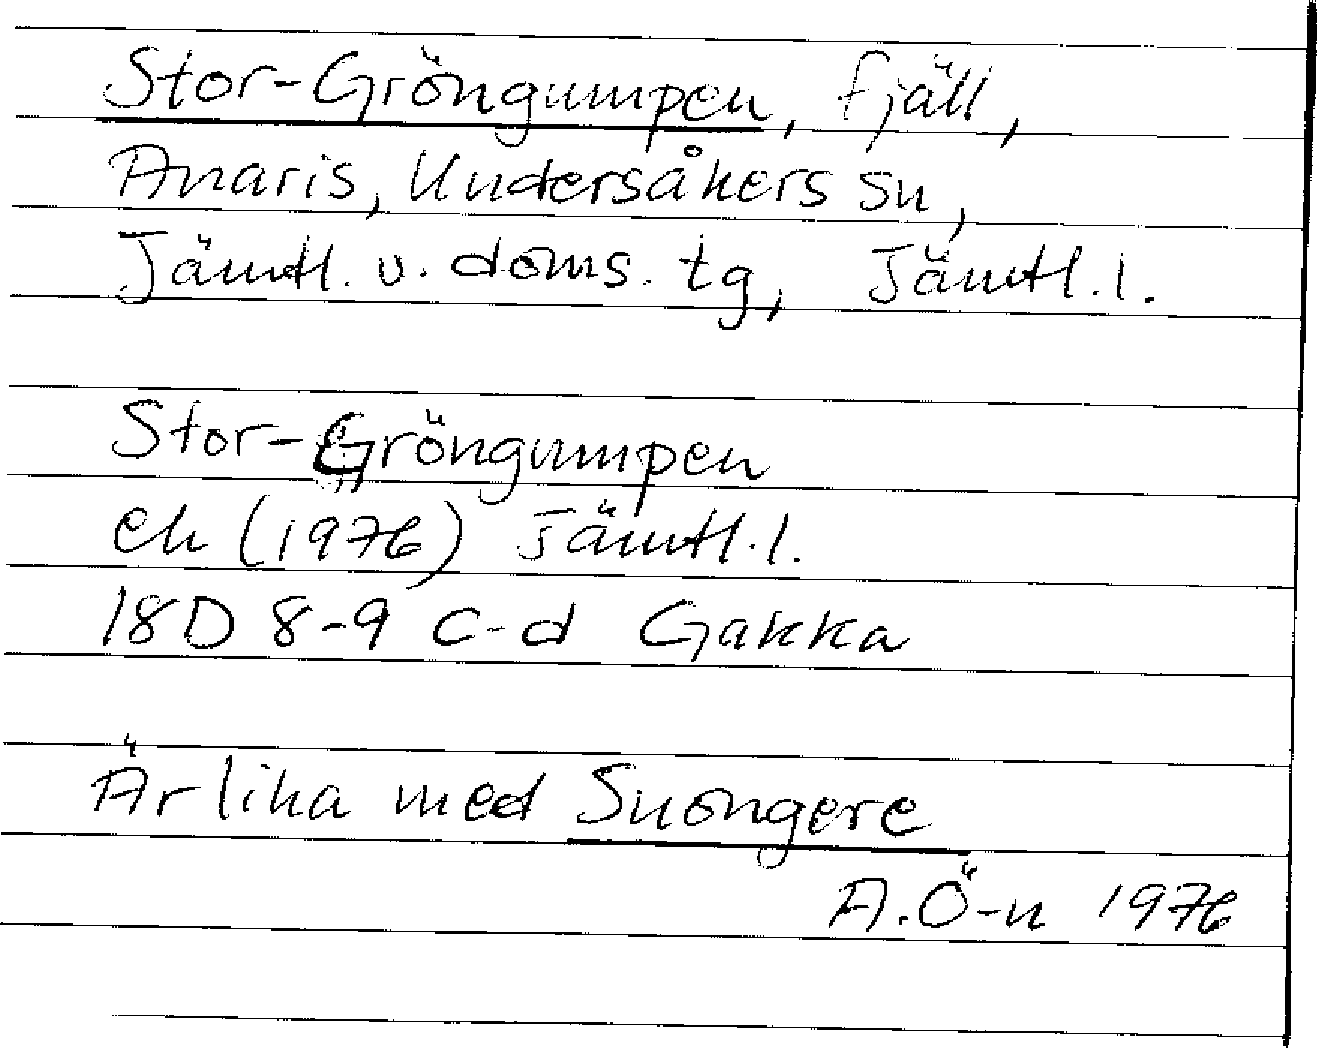 Stor-Gröngumpen, fjäll,
Anaris, Undersåkers sn,
Jämtl. v. doms. tg, Jämtl. l.
Stor-Gröngumpen
ek (1976) Jämtl. l.
18D 8-9 c-d Gakka
Är lika med Snongere
A. Ö-n 1976